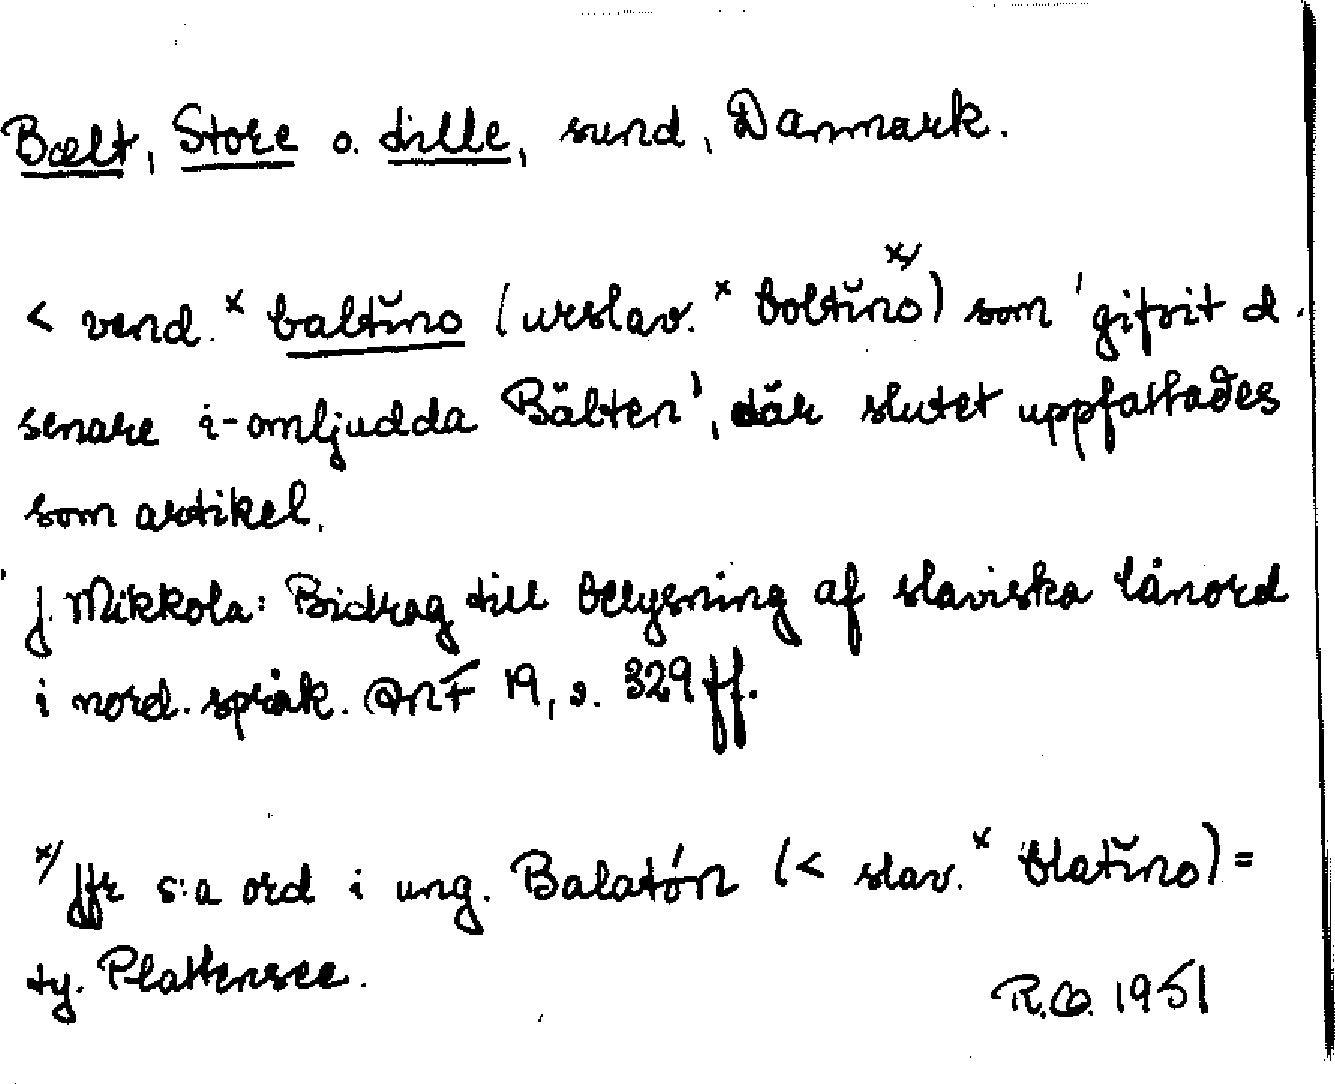 Bælt, Store o. Lille, sund, Danmark.
< vend. * baltĭno (urslav. * boltĭno) x/ som 'gifvit d.
senare i-omljudda Bälten', där slutet uppfattades
som artikel.
J. Mikkola: Bidrag till belysning af slaviska lånord
i nord. språk. ANF 19, s. 329 ff.
x/ Jfr s:a ord i ung. Balatón (< slav. * blatĭno) =
ty. Plattensee.
R.O. 1951